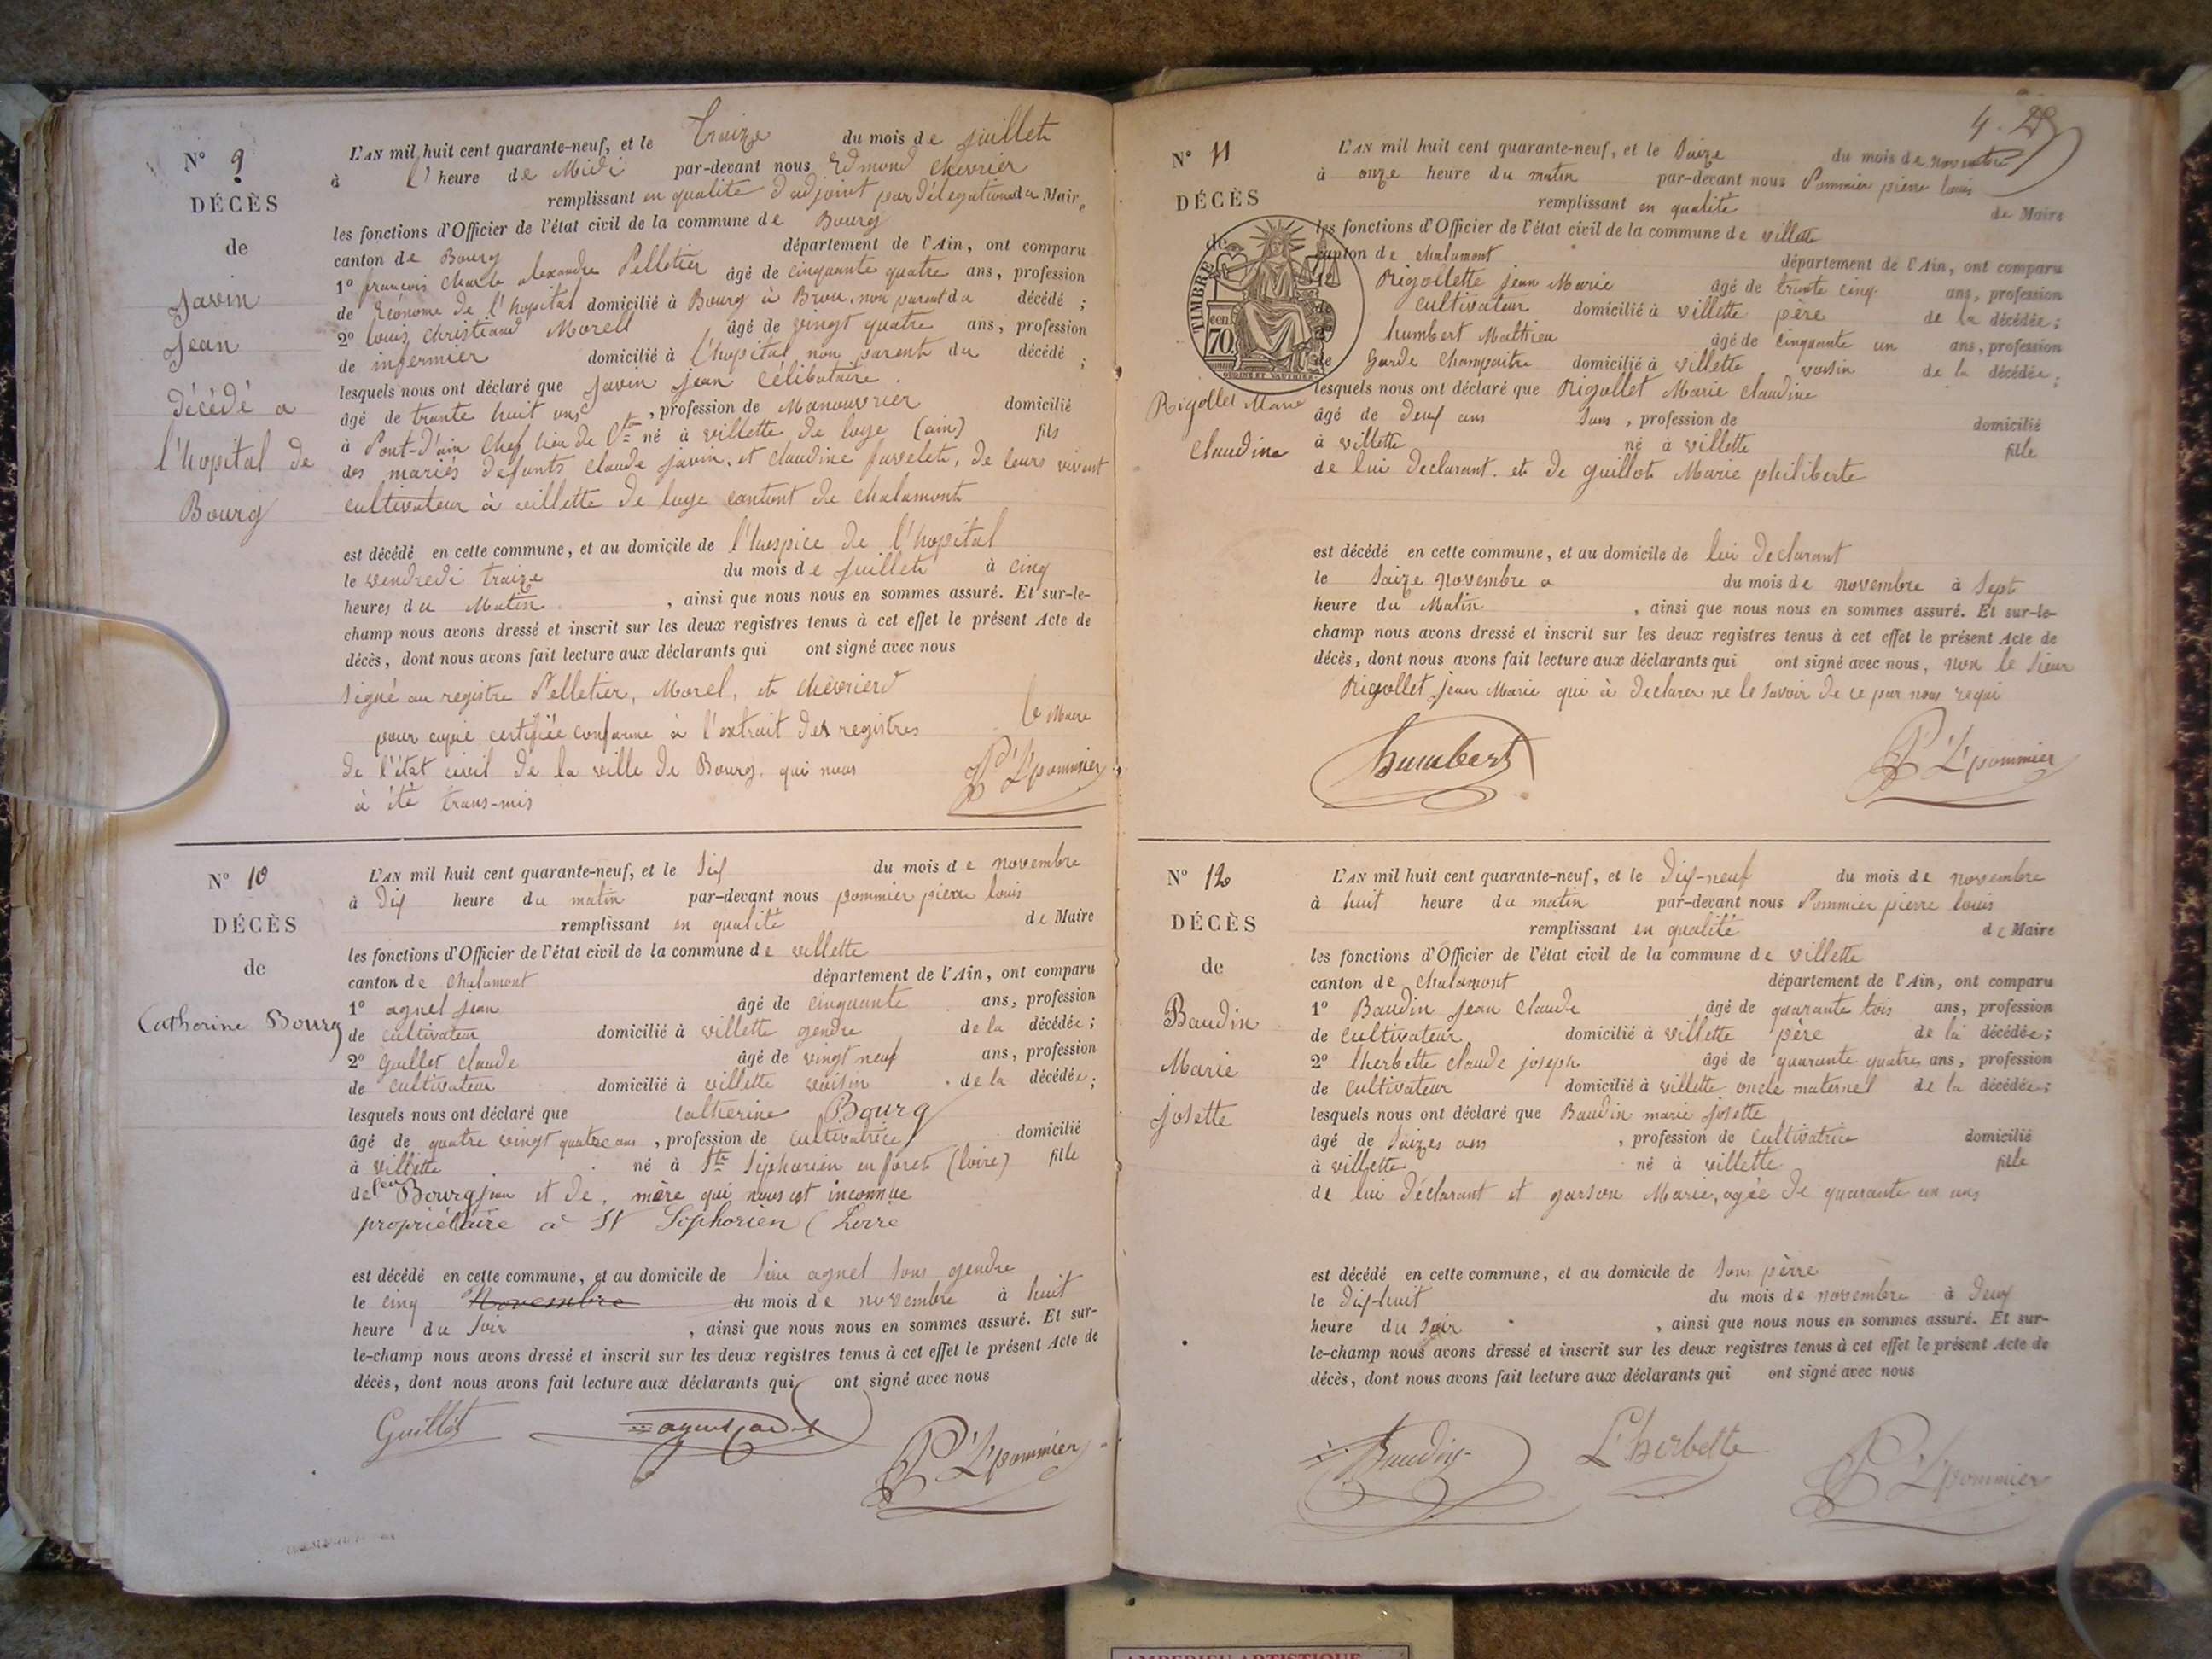 N° 9
DÉCÈS
de
Javin
Jean
Décédé a
l'hopital de
Bourg
L'AN mil huit cent quarante-neuf, et le Treize du mois de juillet
à l' heure de Midi par-devant nous Edmond Chevrier
remplissant en qualité d'adjoint par délégation du Maire
les fonctions d'Officier de l'état civil de la commune de Bourg
canton de Bourg département de l'Ain, ont comparu
1° françois Charle alexandre Pelletier âgé de cinquante quatre ans, profession
de Econome de l'hopital domicilié à Bourg à Brou, non parent du décédé ;
2° louis Christiand Morell âgé de vingt quatre ans, profession
de infermier domicilié à l'hopital non parent du décédé ;
lesquels nous ont déclaré que Javin jean Célibataire.
âgé de trante huit ans, profession de Manouvrier domicilié
à Pont-d'ain Chef lieu de Cton né à villette de loye (ain) fils
des mariés défunts Claude javin, et Claudine favelet, de leurs vivent
cultivateur à villette de loye contont de Chalamont
est décédé en cette commune, et au domicile de l'hospice de l'hopital
le vendredi traize du mois de Juillet à cinq
heures du Matin, ainsi que nous nous en sommes assuré. Et sur-le-
champ nous avons dressé et inscrit sur les deux registres tenus à cet effet le présent Acte de
décès, dont nous avons fait lecture aux déclarants qui ont signé avec nous
Signé au registre Pelletier, Morel, et Chevrier
pour copie certifiée conforme à l'extrait des registres
de l'état civil de la ville de Bourg. qui nous
à été trans-mis
le Maire
P L pommier
N° 10
DÉCÈS
de
Catherine Bourg
L'AN mil huit cent quarante-neuf, et le Six du mois de novembre
à dix heure du matin par-devant nous pommier pierre louis
remplissant en qualité de Maire
les fonctions d'Officier de l'état civil de la commune de villette
canton de Chalamont département de l'Ain, ont comparu
1° agnel jean âgé de cinquante ans, profession
de cultivateur domicilié à villette gendre de la décédée ;
2° guillet Claude âgé de vingt neuf ans, profession
de cultivateur domicilié à villette voisin de la décédée ;
lesquels nous ont déclaré que Catherine Bourg
âgé de quatre vingt quatre ans, profession de cultivatrice domicilié
à villette né à Ste Siphorien en foret (loire) fille
de feu Bourg jean et de, mère qui nous est inconnue
propriétaire a St Siphorien (Loire
est décédé en cette commune, et au domicile de Sieur agnel sons gendre
le cinq Novembre du mois de novembre à huit
heure du Soir, ainsi que nous nous en sommes assuré. Et sur-
le-champ nous avons dressé et inscrit sur les deux registres tenus à cet effet le présent Acte de
décès, dont nous avons fait lecture aux déclarants qui ont signé avec nous
Guillot
P L pommier
4.
N° 11
DÉCÈS
de
TIMBRE
cen 70
OUDINE ET VAUTHIER
Rigollet Marie
Claudine
L'AN mil huit cent quarante-neuf, et le Saize du mois de novembre
à onze heure du matin par-devant nous Pommier pierre louis
remplissant en qualité de Maire
les fonctions d'Officier de l'état civil de la commune de villette
canton de Chalamont département de l'Ain, ont comparu
1° Rigollette jean Marie âgé de trante cinq ans, profession
de cultivateur domicilié à villette père de la décédée ;
2° humbert Matthieu âgé de cinquante un ans, profession
de Garde Champaitre domicilié à villette voisin de la décédée ;
lesquels nous ont déclaré que Rigollet Marie Claudine
âgé de deux ans Sans, profession de domicilié
à villette né à villette fille
de lui Declarant. et de guillot Marie philiberte
est décédé en cette commune, et au domicile de lui Declarant
le Saize novembre a du mois de novembre à Sept
heure du Matin, ainsi que nous nous en sommes assuré. Et sur-le-
champ nous avons dressé et inscrit sur les deux registres tenus à cet effet le présent Acte de
décès, dont nous avons fait lecture aux déclarants qui ont signé avec nous, non le Sieur
Rigollet jean Marie qui à Declarer ne le Savoir de ce par nous requi
humbert
P L pommier
N° 12
DÉCÈS
de
Baudin
Marie
josette
L'AN mil huit cent quarante-neuf, et le Dix-neuf du mois de novembre
à huit heure du matin par-devant nous Pommier pierre louis
remplissant en qualité de Maire
les fonctions d'Officier de l'état civil de la commune de villette
canton de Chalamont département de l'Ain, ont comparu
1° Baudin Jean Claude âgé de quarante tois ans, profession
de cultivateur domicilié à villette père de la décédée ;
2° lherbette Claude joseph âgé de quarante quatre ans, profession
de cultivateur domicilié à villette oncle maternel de la décédée ;
lesquels nous ont déclaré que Baudin marie josette
âgé de Saizes ans, profession de cultivatrice domicilié
à villette né à villette fille
de lui déclarant et garson Marie, agée de quarante un ans
est décédé en cette commune, et au domicile de sons pèrre
le Dix-huit du mois de novembre à Deux
heure du Soir, ainsi que nous nous en sommes assuré. Et sur-
le-champ nous avons dressé et inscrit sur les deux registres tenus à cet effet le présent Acte de
décès, dont nous avons fait lecture aux déclarants qui ont signé avec nous
Baudin
L'herbette
P L pommier
AMBERIEU ARTISTIQUE